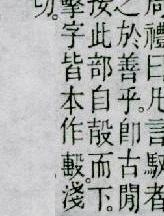 周禮曰凡言馭者
之於善乎。卽古閒
按此部自㱿而下。
擊字皆本作毄淺
切。